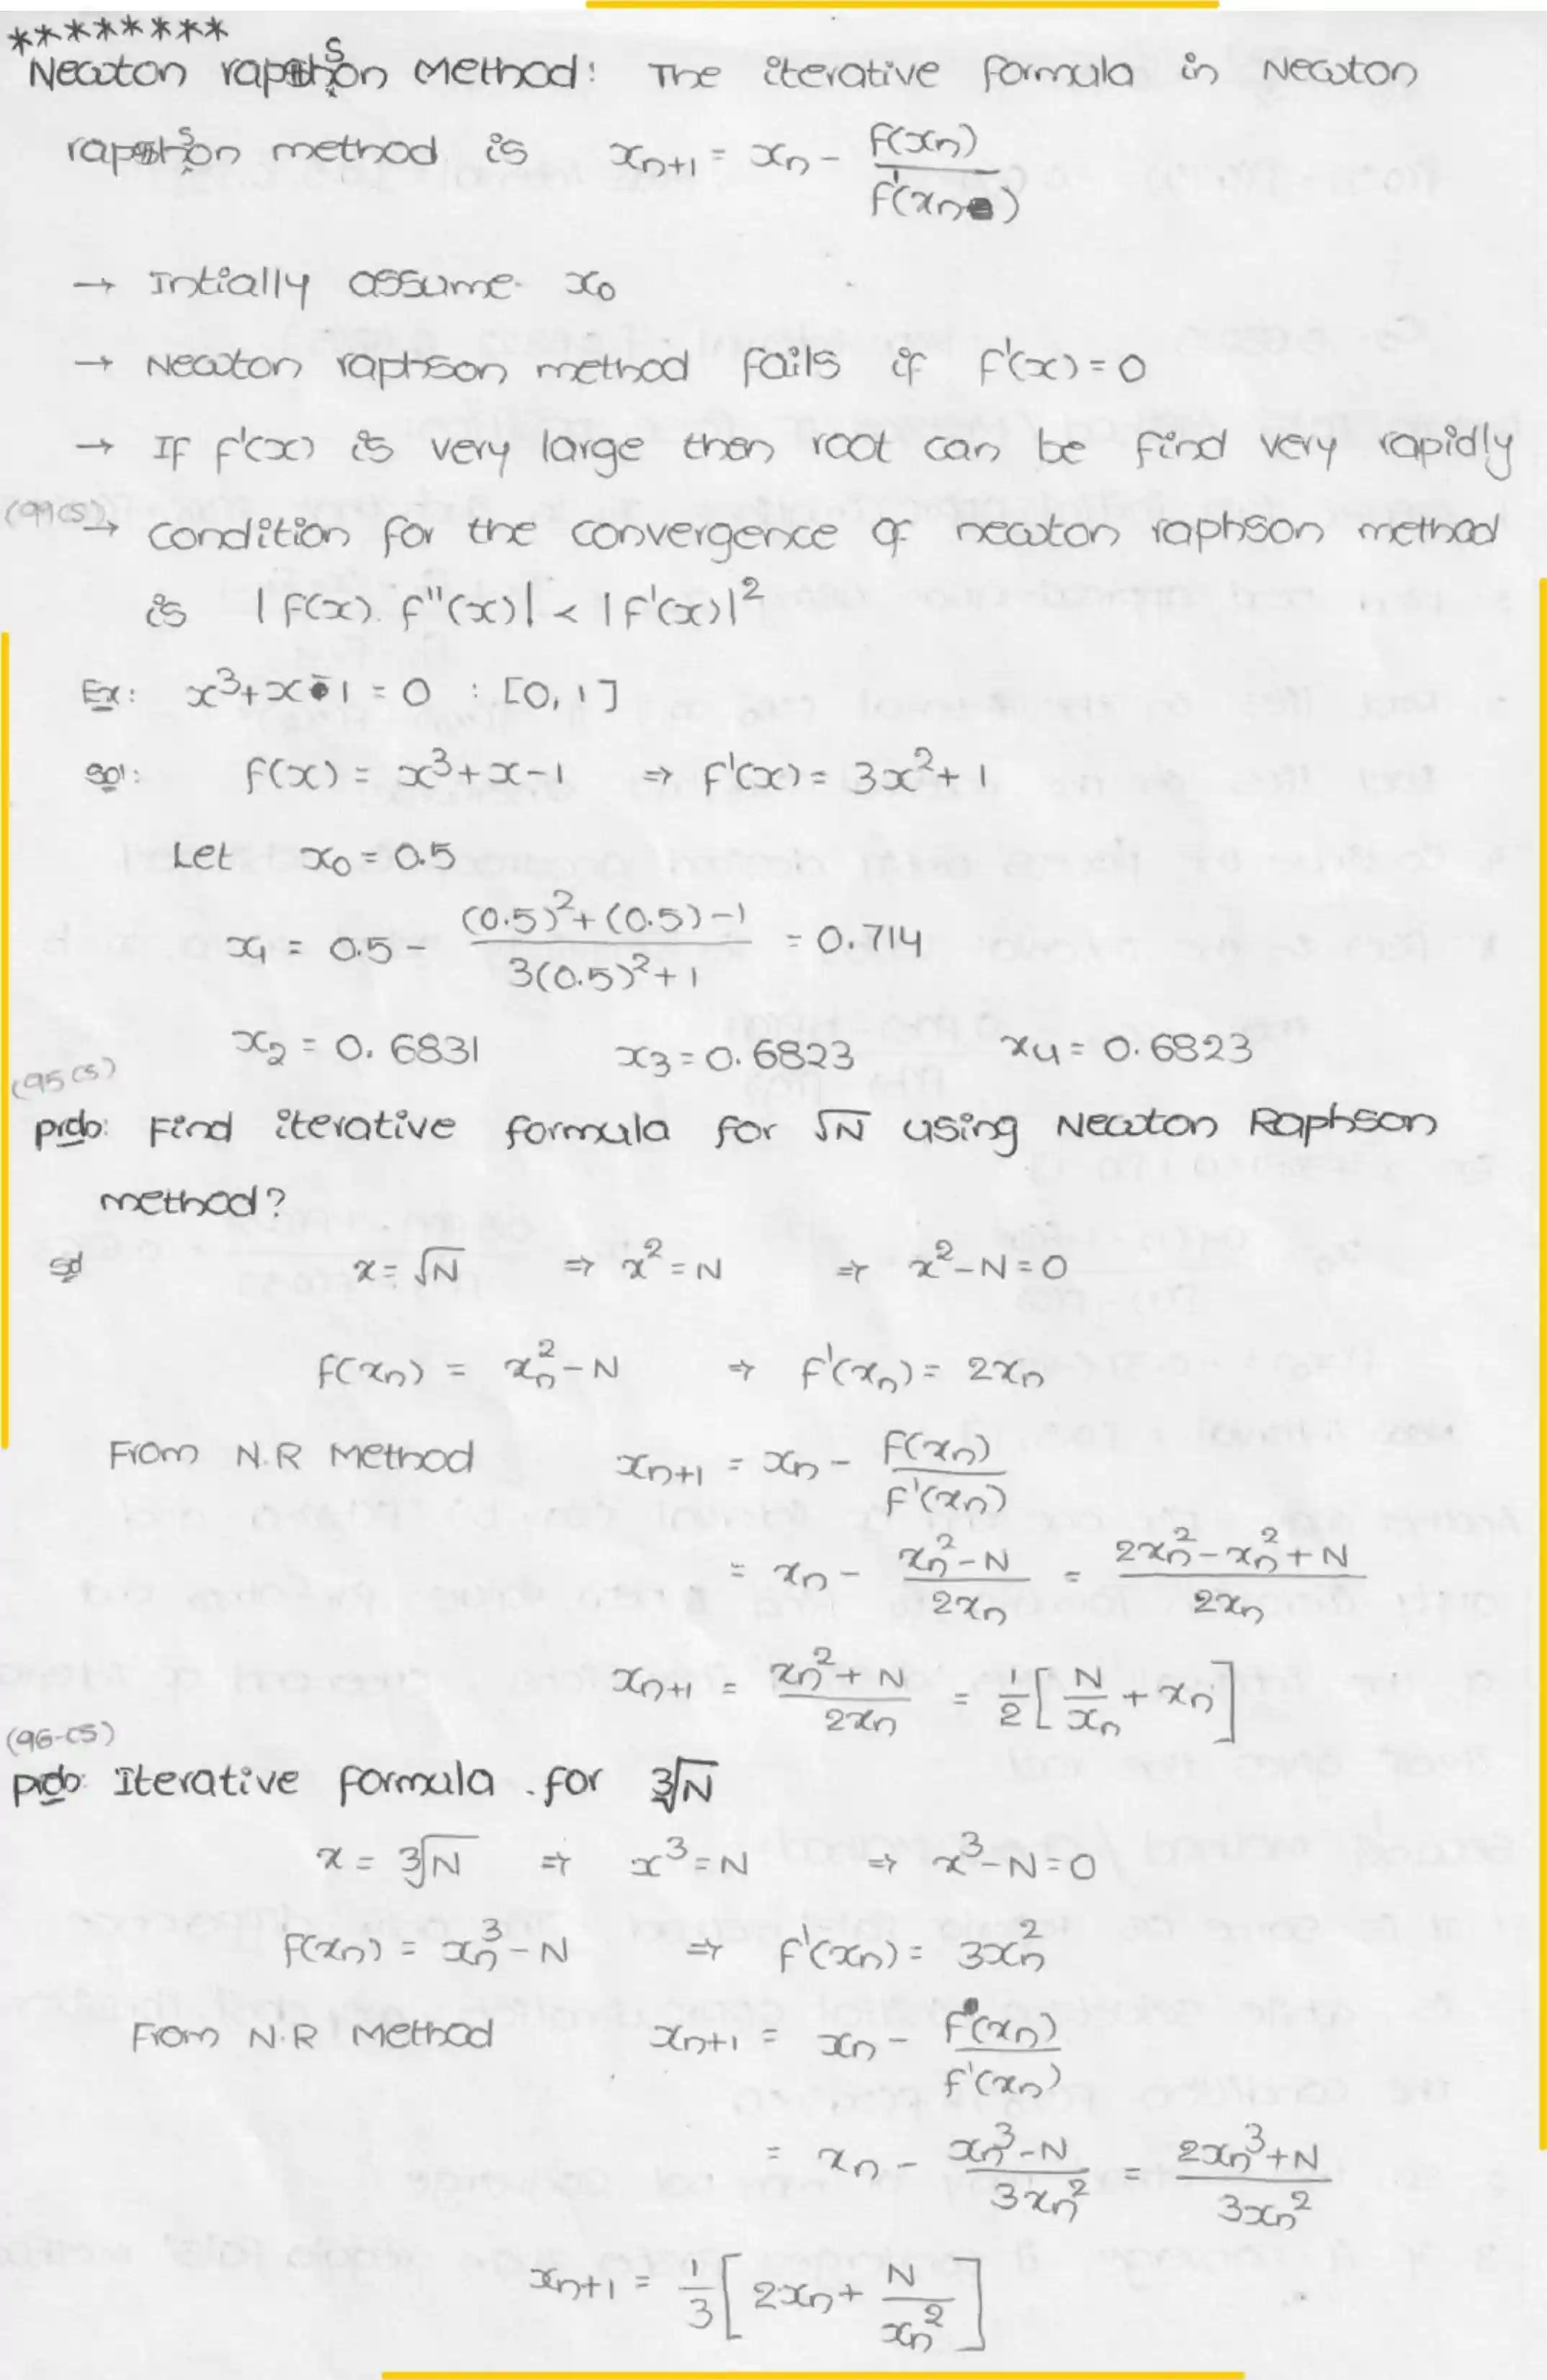 ********
Newton rapshon Method: The iterative formula in Newton
rapshon method is xₙ₊₁ = xₙ - f(xₙ)/f'(xₙ)
→ Intially assume x₀
→ Newton raphson method fails if f'(x) = 0
→ If f'(x) is very large then root can be find very rapidly
(99CS) → condition for the convergence of newton raphson method
is |f(x). f"(x)| < |f'(x)|²
Ex: x³+x-1 = 0 : [0, 1]
Sol: f(x) = x³+x-1 ⇒ f'(x) = 3x²+1
Let x₀ = 0.5
x₁ = 0.5 - (0.5)²+(0.5)-1 / 3(0.5)²+1 = 0.714
x₂ = 0.6831 x₃ = 0.6823 x₄ = 0.6823
(95 CS)
Prob: Find iterative formula for √N using Newton Raphson
method?
Sol x = √N ⇒ x² = N ⇒ x²-N = 0
f(xₙ) = xₙ²-N ⇒ f'(xₙ) = 2xₙ
From N.R Method xₙ₊₁ = xₙ - f(xₙ)/f'(xₙ)
= xₙ - (xₙ²-N)/2xₙ = (2xₙ²-xₙ²+N)/2xₙ
xₙ₊₁ = (xₙ²+N)/2xₙ = 1/2[N/xₙ + xₙ]
(96-CS)
Prob: Iterative formula for ³√N
x = ³√N ⇒ x³ = N ⇒ x³-N = 0
f(xₙ) = xₙ³-N ⇒ f'(xₙ) = 3xₙ²
From N.R Method xₙ₊₁ = xₙ - f(xₙ)/f'(xₙ)
= xₙ - (xₙ³-N)/3xₙ² = (2xₙ³+N)/3xₙ²
xₙ₊₁ = 1/3[2xₙ + N/xₙ²]